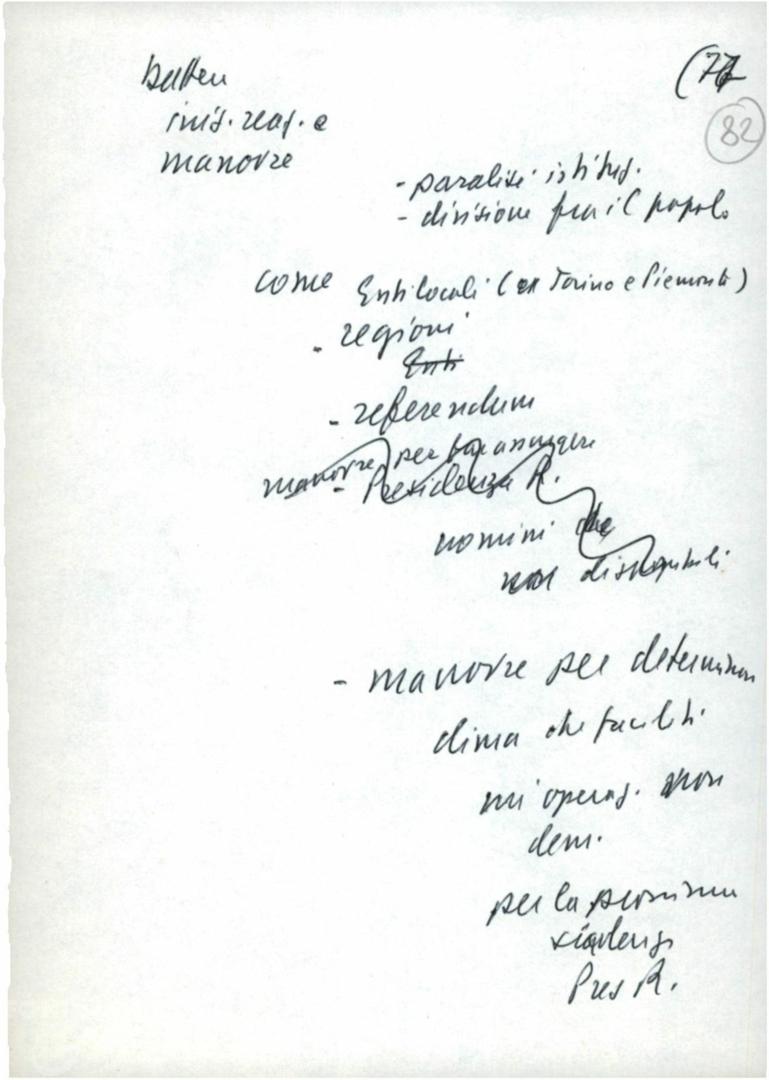 (77
82
battere
iniz. reaz. e
manovre
- paralisi istituz.
- divisione fra il popolo
come Enti locali (ex Torino e Piemonte)
- regioni
Enti
- referendum
manovre per far assurgere
- Presidenza R.
uomini che
non disponibili
- manovre per determinare
clima che faciliti
un'operaz. non
dem.
per la prossima
scadenza
Pres R.